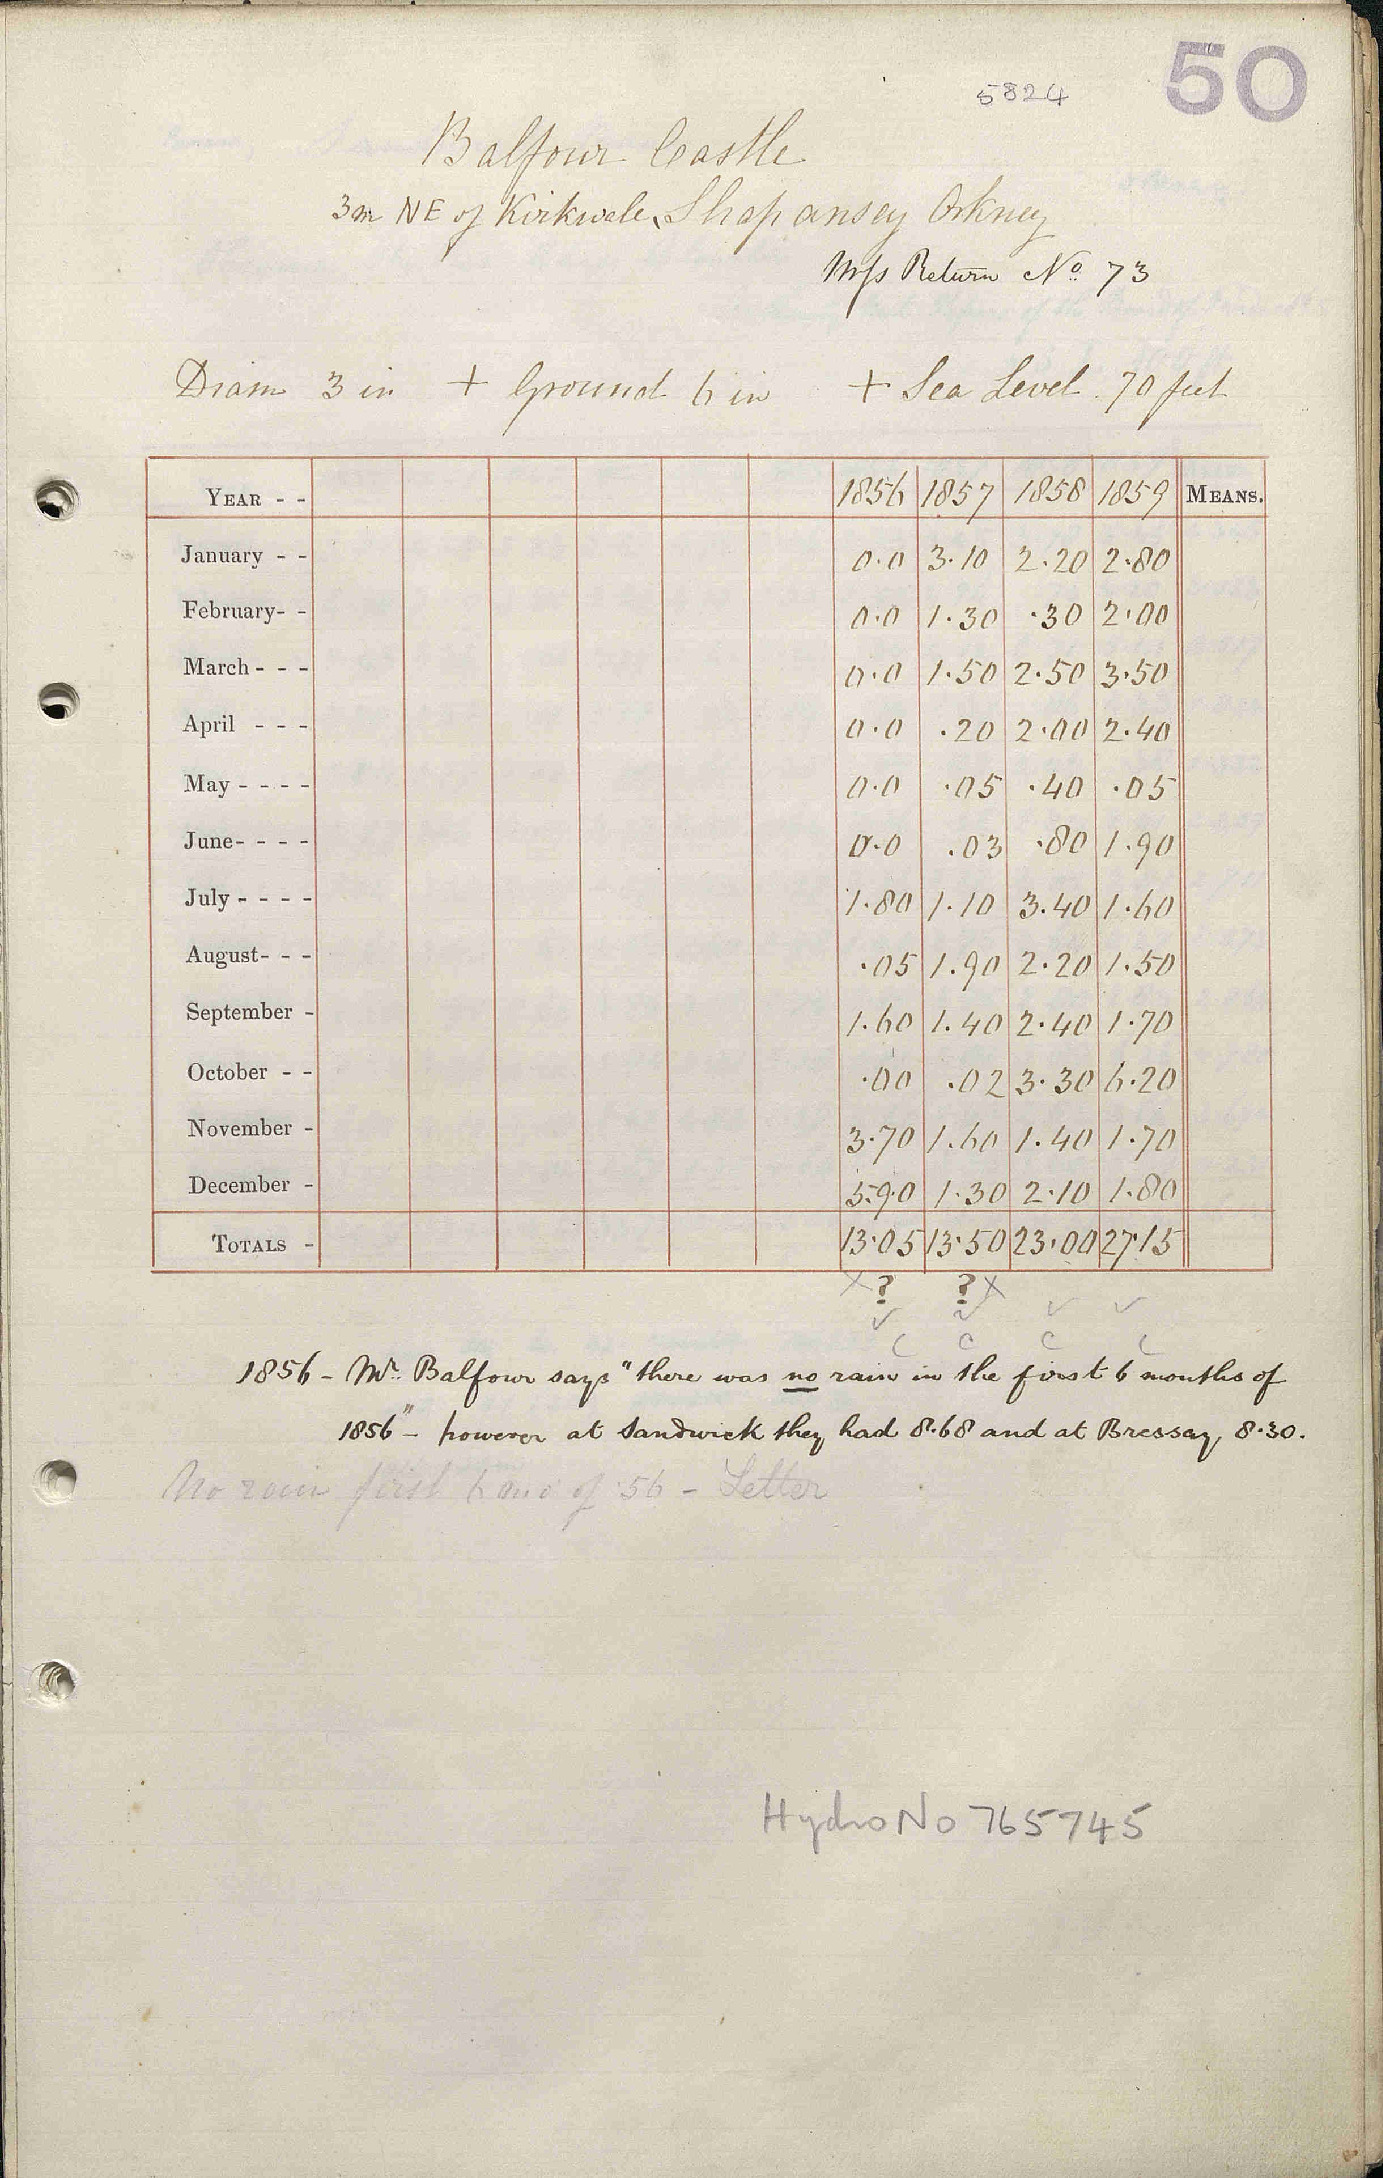 50
5824
Balfour Castle
3m NE of Kirkwale, Shapansey Orkney
Mss Return No. 73
Diam 3 in + Ground 6 in + Sea Level 70 feet
YEAR - - 1856 1857 1858 1859 MEANS.
January - - 0.0 3.10 2.20 2.80
February- - 0.0 1.30 .30 2.00
March - - - 0.0 1.50 2.50 3.50
April - - - 0.0 .20 2.00 2.40
May - - - - 0.0 .05 .40 .05
June- - - - 0.0 .03 .80 1.90
July - - - - 1.80 1.10 3.40 1.60
August- - - .05 1.90 2.20 1.50
September - 1.60 1.40 2.40 1.70
October - - .00 .02 3.30 6.20
November - 3.70 1.60 1.40 1.70
December - 5.90 1.30 2.10 1.80
TOTALS - 13.05 13.50 23.00 27.15
x ? ? x
✓ ✓ ✓ ✓
c c c c
1856 - Mr. Balfour says "there was no rain in the first 6 months of
1856" - however at Sandwick they had 8.68 and at Bressay, 8.30.
No rain first 6 mo of 56 - Letter
Hydro No 765745